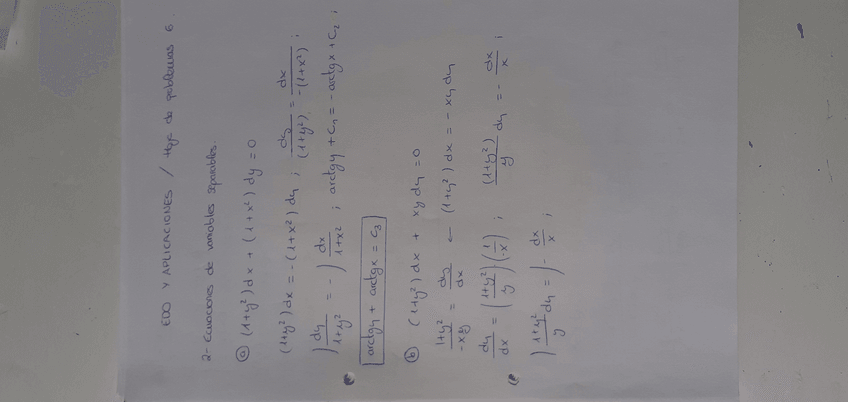 EDO Y APLICACIONES / Hoja de problemas 6.
2- Ecuaciones de variables separables.
a) (1+y²)dx + (1+x²)dy = 0
(1+y²)dx = -(1+x²)dy ; dy/(1+y²) = dx/-(1+x²) ;
∫ dy/1+y² = -∫ dx/1+x² ; arctgy + C₁ = -arctgx + C₂ ;
arctgy + arctgx = C₃
b) (1+y²)dx + xy dy = 0
1+y²/-xy = dy/dx ← (1+y²)dx = -xy dy
dy/dx = (1+y²/y)(1/-x) ; (1+y²)/y dy = - dx/x ;
∫ 1+y²/y dy = ∫ - dx/x ;